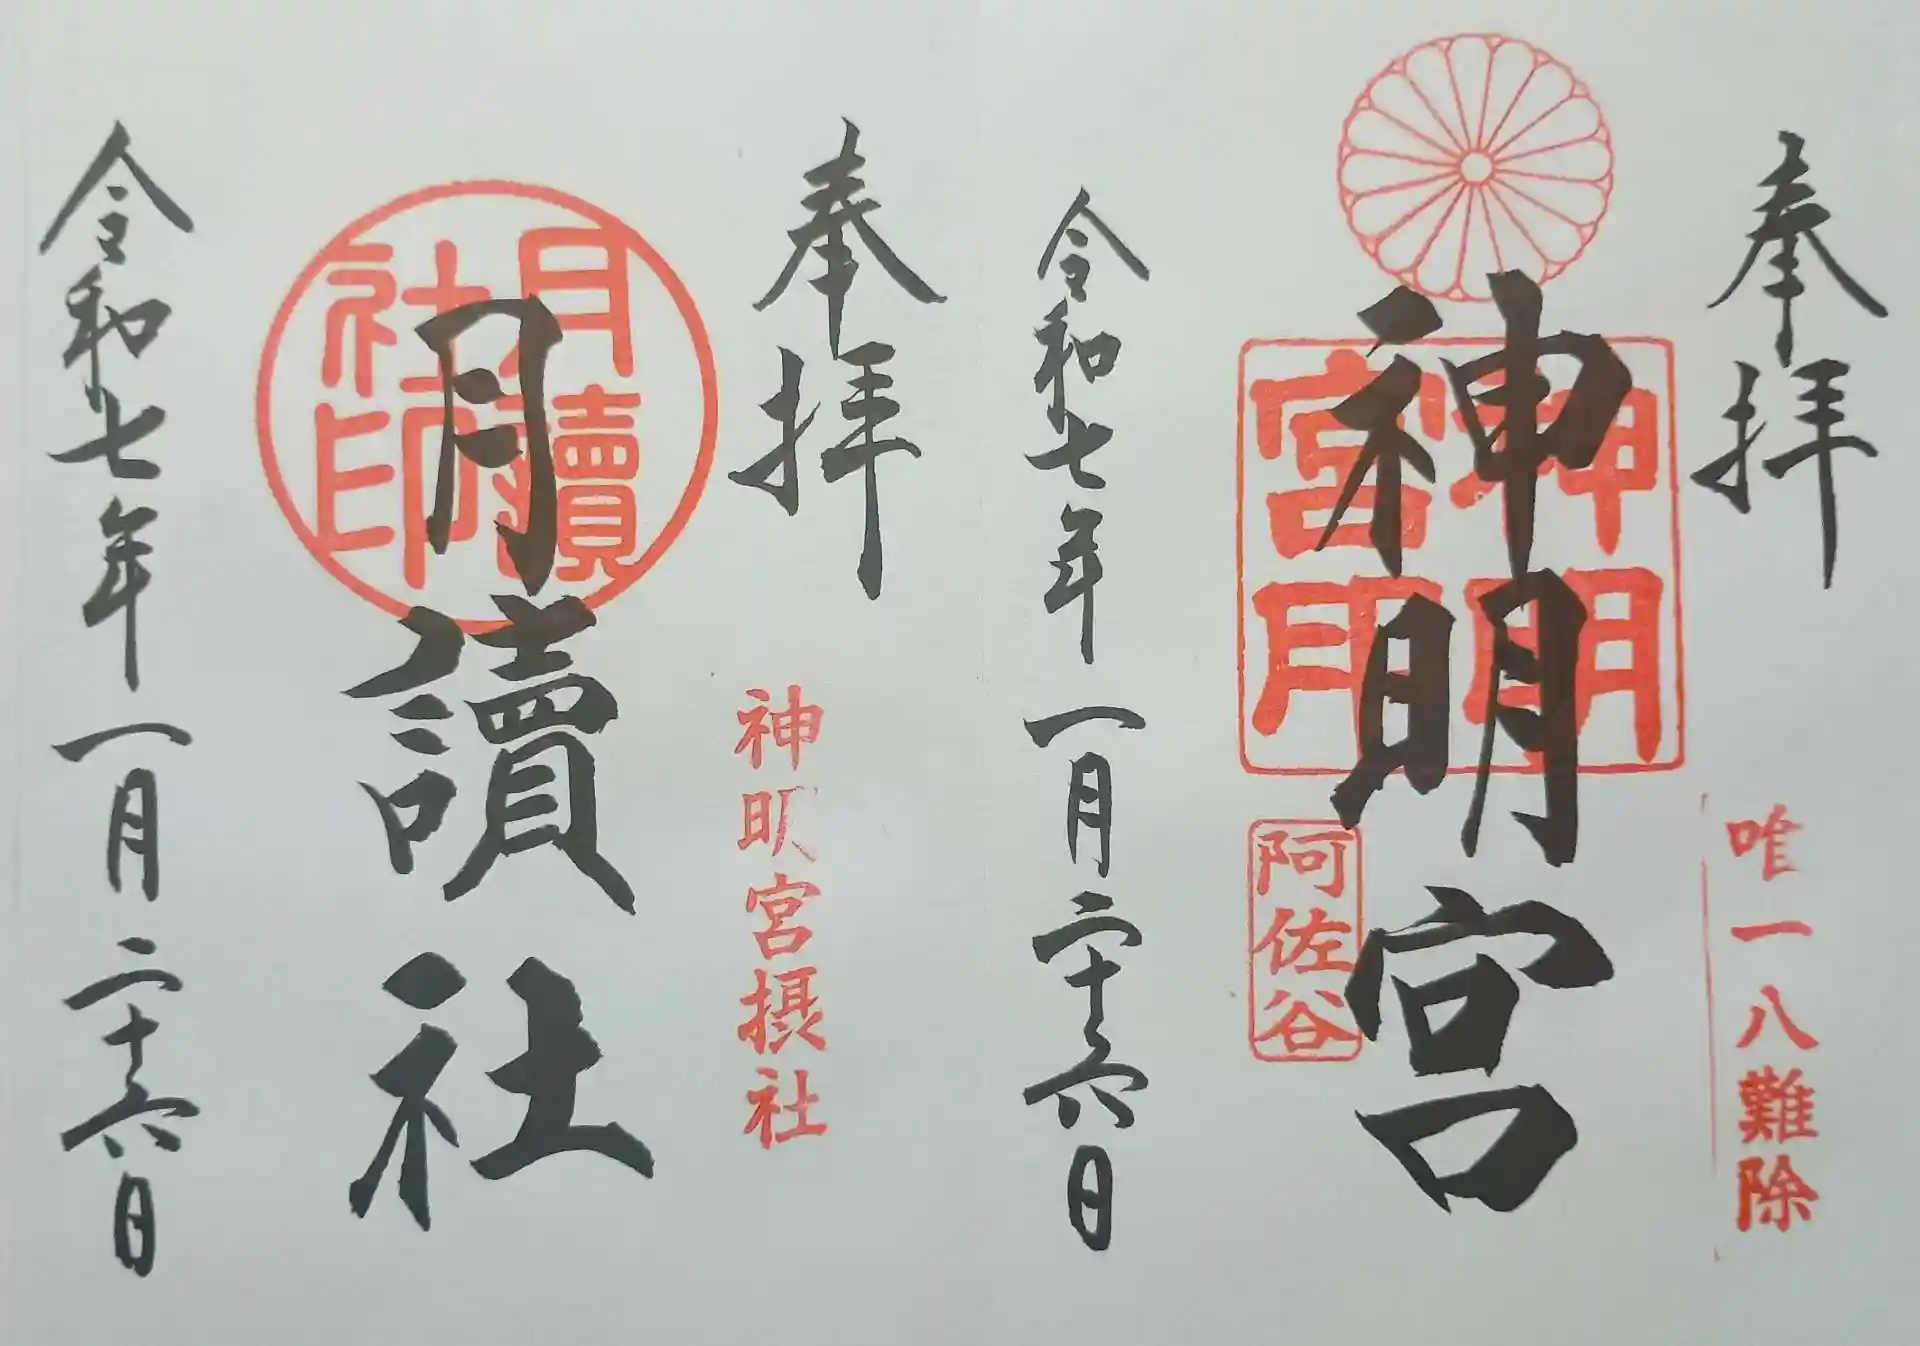 奉拝
唯一八難除
神明宮
神明
宮印
阿佐谷
令和七年一月二十六日
奉拝
神明宮摂社
月讀社
月讀
社印
令和七年一月二十六日